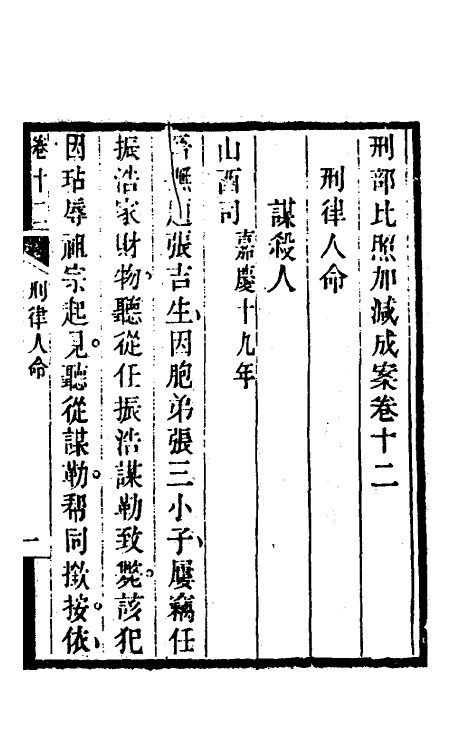 刑部比照加減成案卷十二
刑律人命
謀殺人
山西司
嘉慶十九年
晉撫題張吉生、因胞弟張三小子、屢竊任
振浩家財物。聽從任振浩謀勒致斃。該犯
因玷辱祖宗起見。聽從謀勒。帮同揿按。依、
卷十二
刑律人命
一